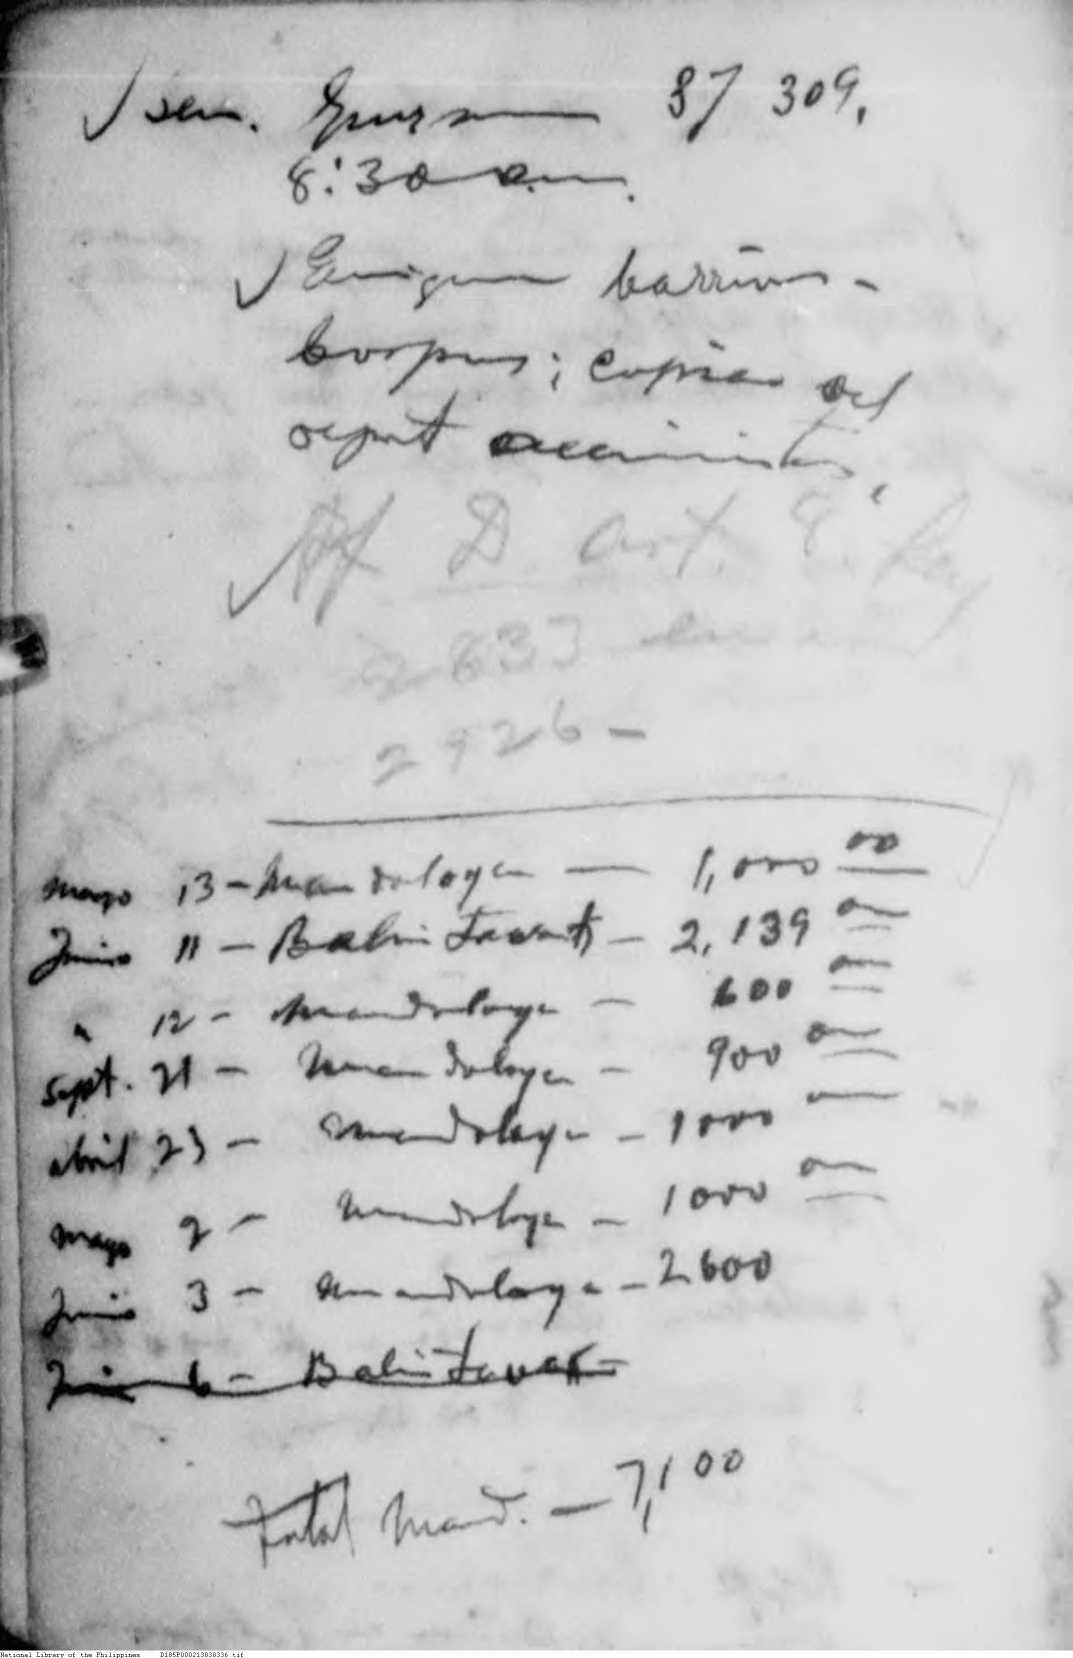 sen. 87 309,
8:30 a.m.
barrios -
corpus; copias del
report
Af D art. 8. Ley
2833
2926 -
Mayo 13 - Mandaloya — 1,000 00
Junio 11 - Balintawak - 2,139 00
" 12 - Mandaloya - 600 00
Sept. 21 - Mandaloya - 900 00
abril 23 - Mandaloya - 1000
Mayo 2 - Mandaloya - 1000 00
Junio 3 - Mandaloya - 2600
Junio 6 - Balintawak -
Total Mand. - 7,100
National Library of the Philippines D185P000213038336.tif